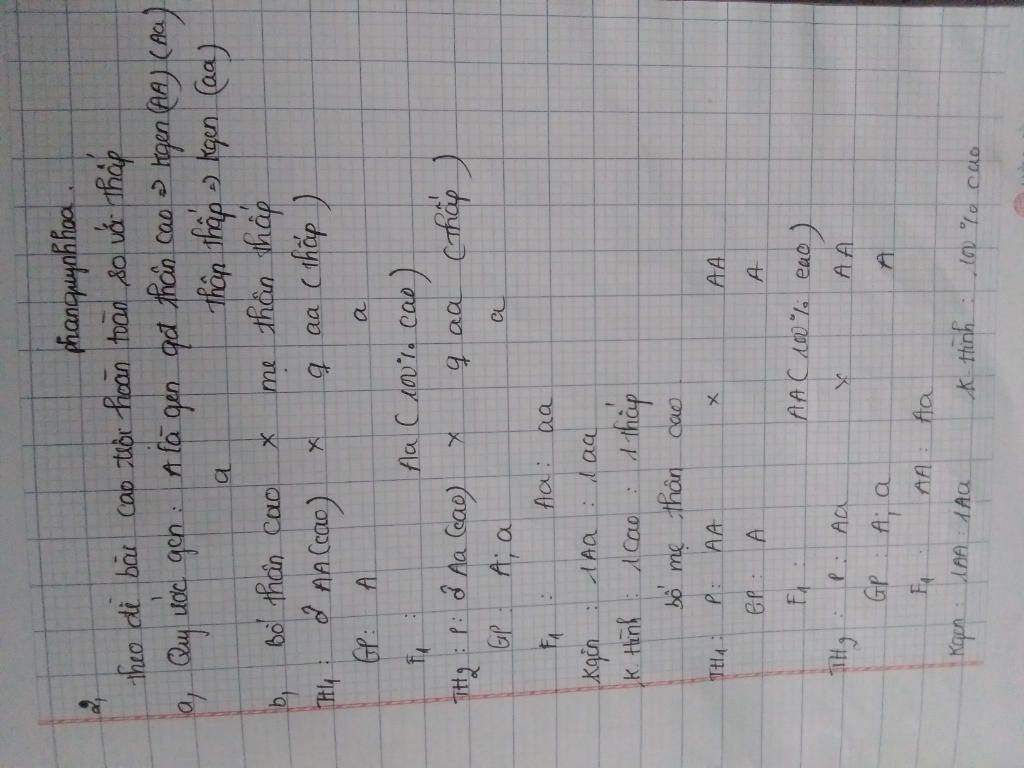 phanquynhhoa.
2,
theo đề bài cao trội hoàn toàn so với thấp
a, Quy ước gen : A là gen qđ thân cao => kgen (AA) (Aa)
a thấp thấp => kgen (aa)
b, Bố thân cao x mẹ thân thấp
TH1 : ♂ AA (cao) x ♀ aa (thấp)
GP: A a
F1 : Aa (100% cao)
TH2 : P: ♂ Aa (cao) x ♀ aa (thấp)
GP : A; a a
F1 : Aa : aa
Kgen : 1Aa : 1aa
K. Hình : 1 cao : 1 thấp
bố mẹ thân cao
TH1 : P: AA x AA
GP : A A
F1 : AA (100% cao)
TH2 : P : Aa x AA
GP : A; a A
F1 : AA : Aa
Kgen : 1AA : 1Aa K-Hình : 100% cao